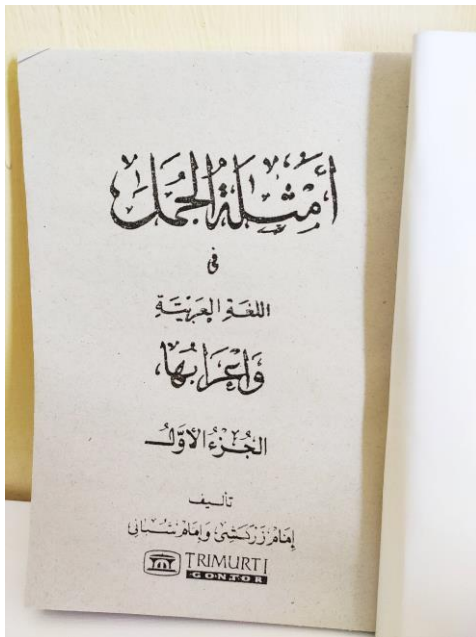 أَمْثِلَةُ الْجُمَلِ
فى
اللُّغَةِ الْعَرَبِيَّةِ
وَإِعْرَابُهَا
الْجُزْءُ الْأَوَّلُ
تأليف
إمام زركشى وإمام شبانى
TRIMURTI
GONTOR